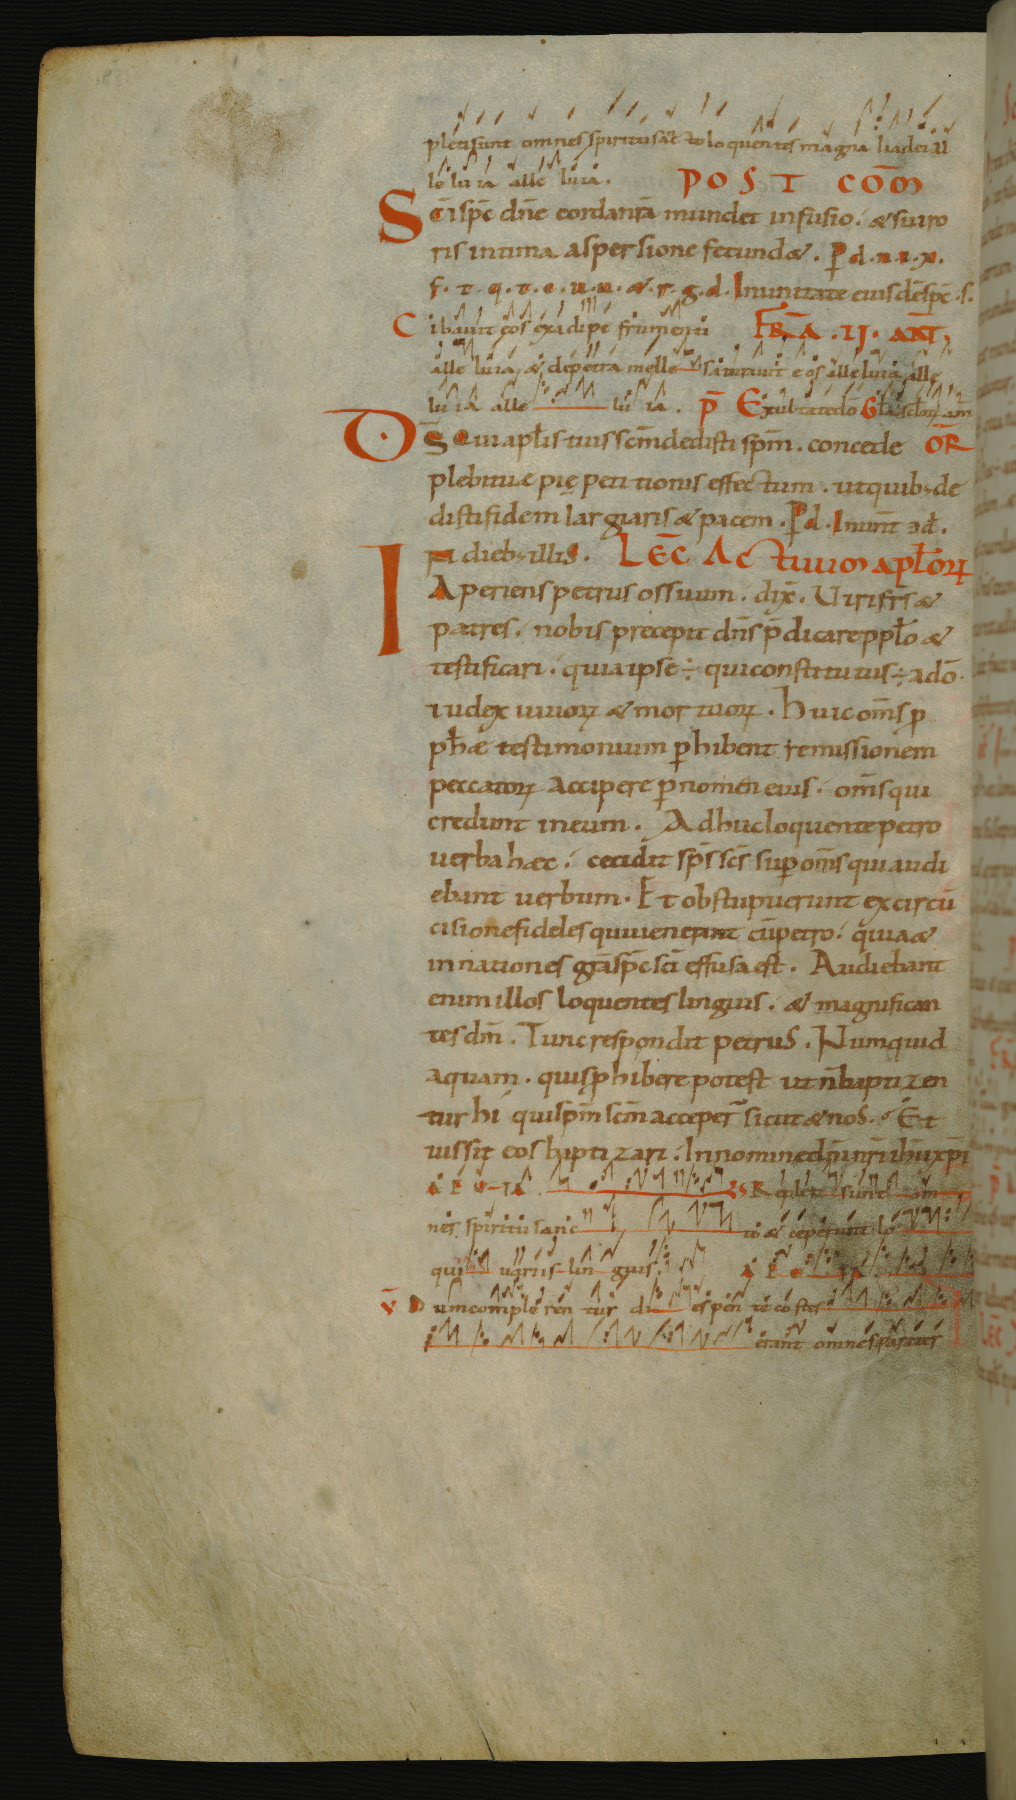 pletisunt omnes spiritu sāc to loquentes magna lia dei al
le lu ia alle luia. POST COM̄
Sc̄i sp̄c dn̄e cordanr̄a mundet infusio. & sui ro
ris intima aspersione fecund&. P d. n. r. x.
f. t. q. t. e. u. u. &. r. g. d. In unitate eius dē sp̄c. s.
Cibauit eos exadipe frumenti FR̄A. II. AÑT,
alle luia, & depetra melle saturauit eos alle luia, alle
lu ia alle lu ia. p̄ Exultatedō Gla seclor am
D̄S Qui apl̄is tuis sc̄m dedisti sp̄m. concede ŌR
plebituae pię petitionis effectum. utquib; de
distifidem largiaris & pacem. P d. In unit̄ ad.
In dieb; illis. LEC̄ ACtuum apl̄orꝝ
Aperiens petrus ossuum. dix̄. Uirifr̄s &
patres. nobis precepit dn̄s p̄dicare ppl̄o &
testificari. quiaipse ÷ quiconstitutus ÷ adō.
iudex uiuorꝝ & mortuorꝝ. Huic om̄s p
ph̄ae testimonium phibent remissionem
peccatorꝝ accipere p nomen eius. om̄s qui
credunt ineum. Adhucloquente petro
uerba haec. cecidit sp̄s sc̄s sup om̄s qui audi
ebant uerbum. Et obstupuerunt excircū
cisionefideles quiuenerant cūpetro. quia &
innationes gr̄a sp̄c sc̄i effusa est. Audiebant
enim illos loquentes linguis. & magnifican
tes dm̄. Tunc respondit petrus. Numquid
aquam. quis phibere potest ut n̄ baptizen
tur hi qui sp̄m sc̄m acceper̄ sicut & nos. Et
iussit eos baptizari. In nomine dn̄i nr̄i ih̄u xp̄i
A E V-IA. R epleti sunt om
nes spiritu sanc to & ceperunt lo
qui uariis lin guis. A E IA
v̄ Dum comple ren tur di es pen te co stes
erant omnes pariter